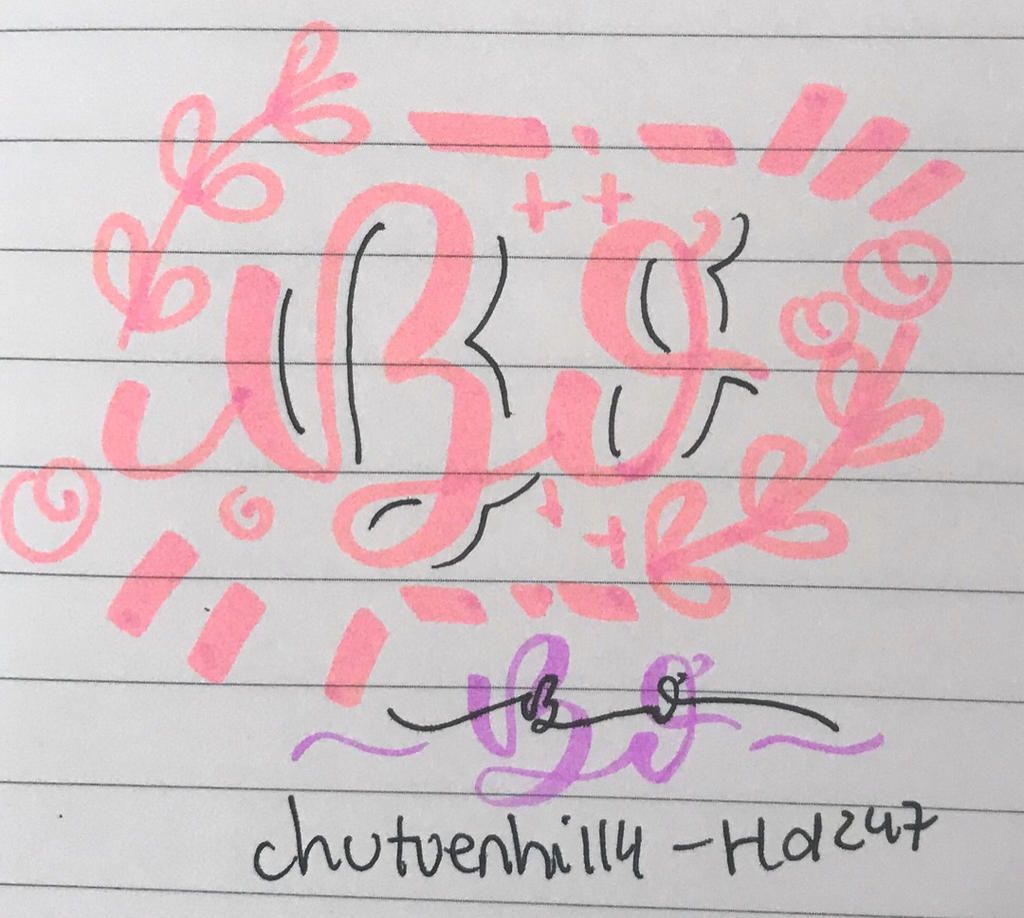 Bơ
Bơ
Bơ
chutuenhi114 - Hd247